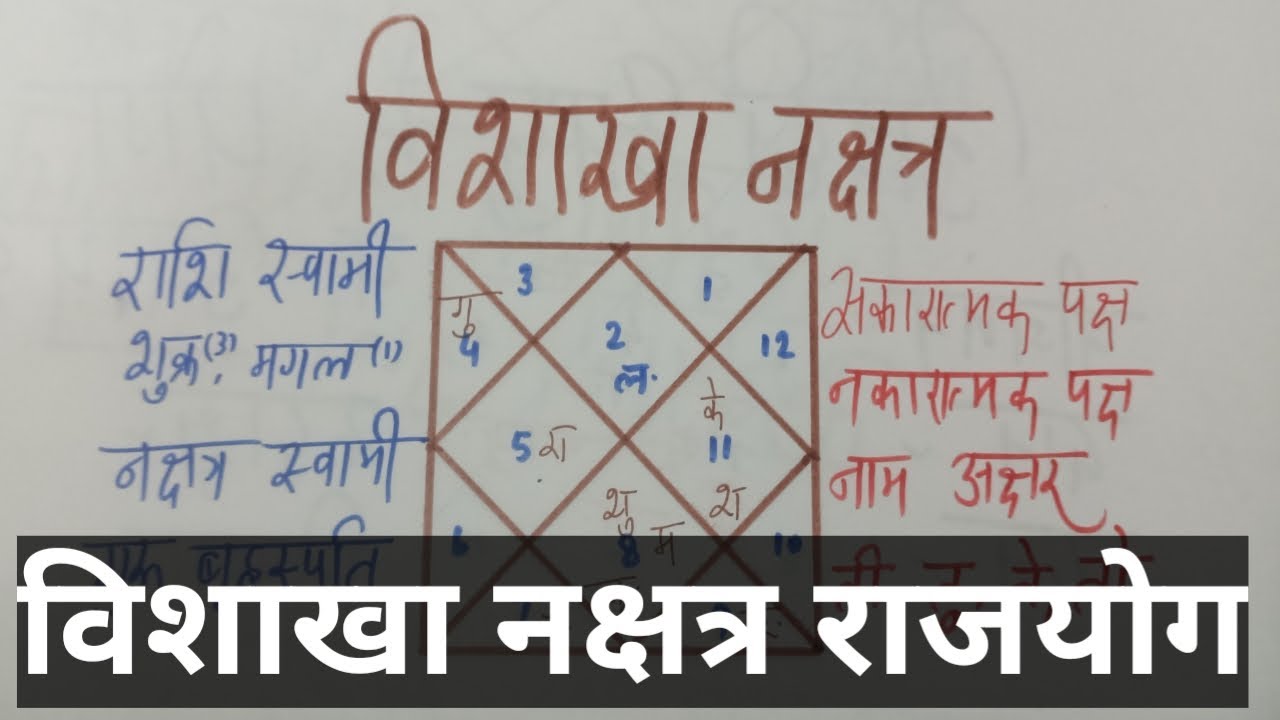 विशाखा नक्षत्र
राशि स्वामी
शुक्र(3), मगल(1)
नक्षत्र स्वामी
बृहस्पति
3
1
गु
4
2
ल.
12
के
5
11
शु
श
8 म
10
सकारात्मक पक्ष
नकारात्मक पक्ष
नाम अक्षर
विशाखा नक्षत्र राजयोग